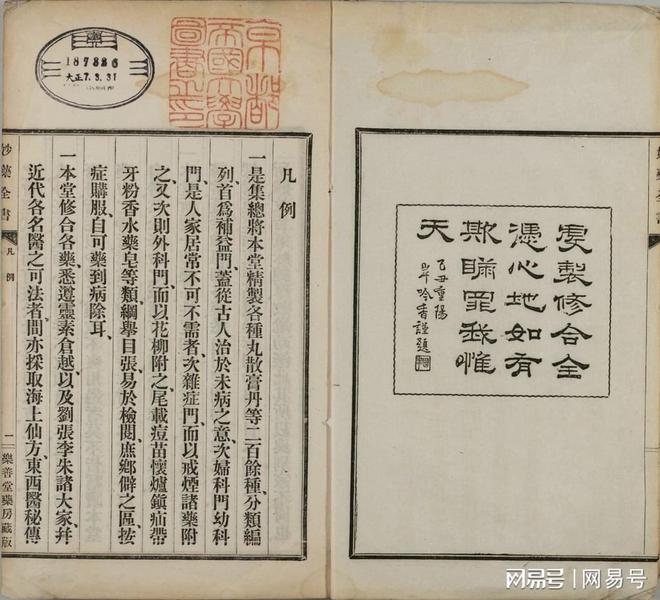 虔製修合全
憑心地如有
欺瞞罪我惟
天
乙丑重陽
岸吟香謹題
京都
帝國大學
圖書之印
187886
大正7.3.31
凡例
一是集總將本堂精製各種丸散膏丹等二百餘種、分類編
列、首爲補益門、蓋從古人治於未病之意、次婦科門幼科
門、是人家居常不可不需者、次雜症門、而以戒煙諸藥附
之、又次則外科門、而以花柳附之、尾載痘苗懷爐鎭疝帶
牙粉香水藥皂等類、綱舉目張、易於檢閱、庶鄉僻之區、按
症購服、自可藥到病除耳、
一本堂修合各藥、悉遵靈素倉越、以及劉張李朱諸大家、幷
近代各名醫之可法者、間亦採取海上仙方、東西醫秘傳
妙藥全書
凡例
一
樂善堂藥房藏版
网易号 | 网易号